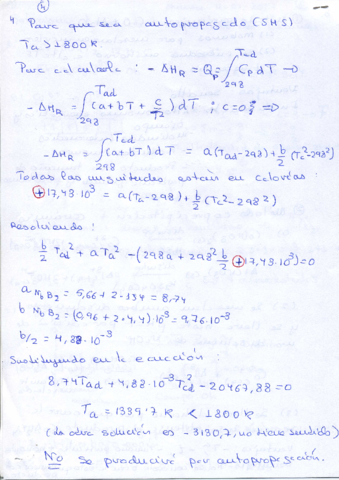 4
4 Para que sea autopropagado (SHS)
Ta > 1800 K
Para calcularla : -ΔH_R = Q_p = ∫_298^Tad C_p dT →
-ΔH_R = ∫_298^Tad (a + bT + c/T²) dT ; c = 0 ⇒
-ΔH_R = ∫_298^Tad (a + bT) dT = a(Tad - 298) + b/2 (Tc² - 298²)
Todas las magnitudes están en calorías:
+17,43·10³ = a(Tc - 298) + b/2 (Tc² - 298²)
Resolviendo :
b/2 Tad² + a Ta² - (298a + 298² b/2 + 17,43·10³) = 0
a NbB2 = 5,66 + 2·1'54 = 8,74
b NbB2 = (0,96 + 2·4,4)·10⁻³ = 9,76·10⁻³
b/2 = 4,88·10⁻³
Sustituyendo en la ecuación :
8,74 Tad + 4,88·10⁻³ Tad² - 20467,88 = 0
Ta = 1339'7 K < 1800 K
(la otra solución es -3130,7, no tiene sentido)
- No se producirá por autopropagación.